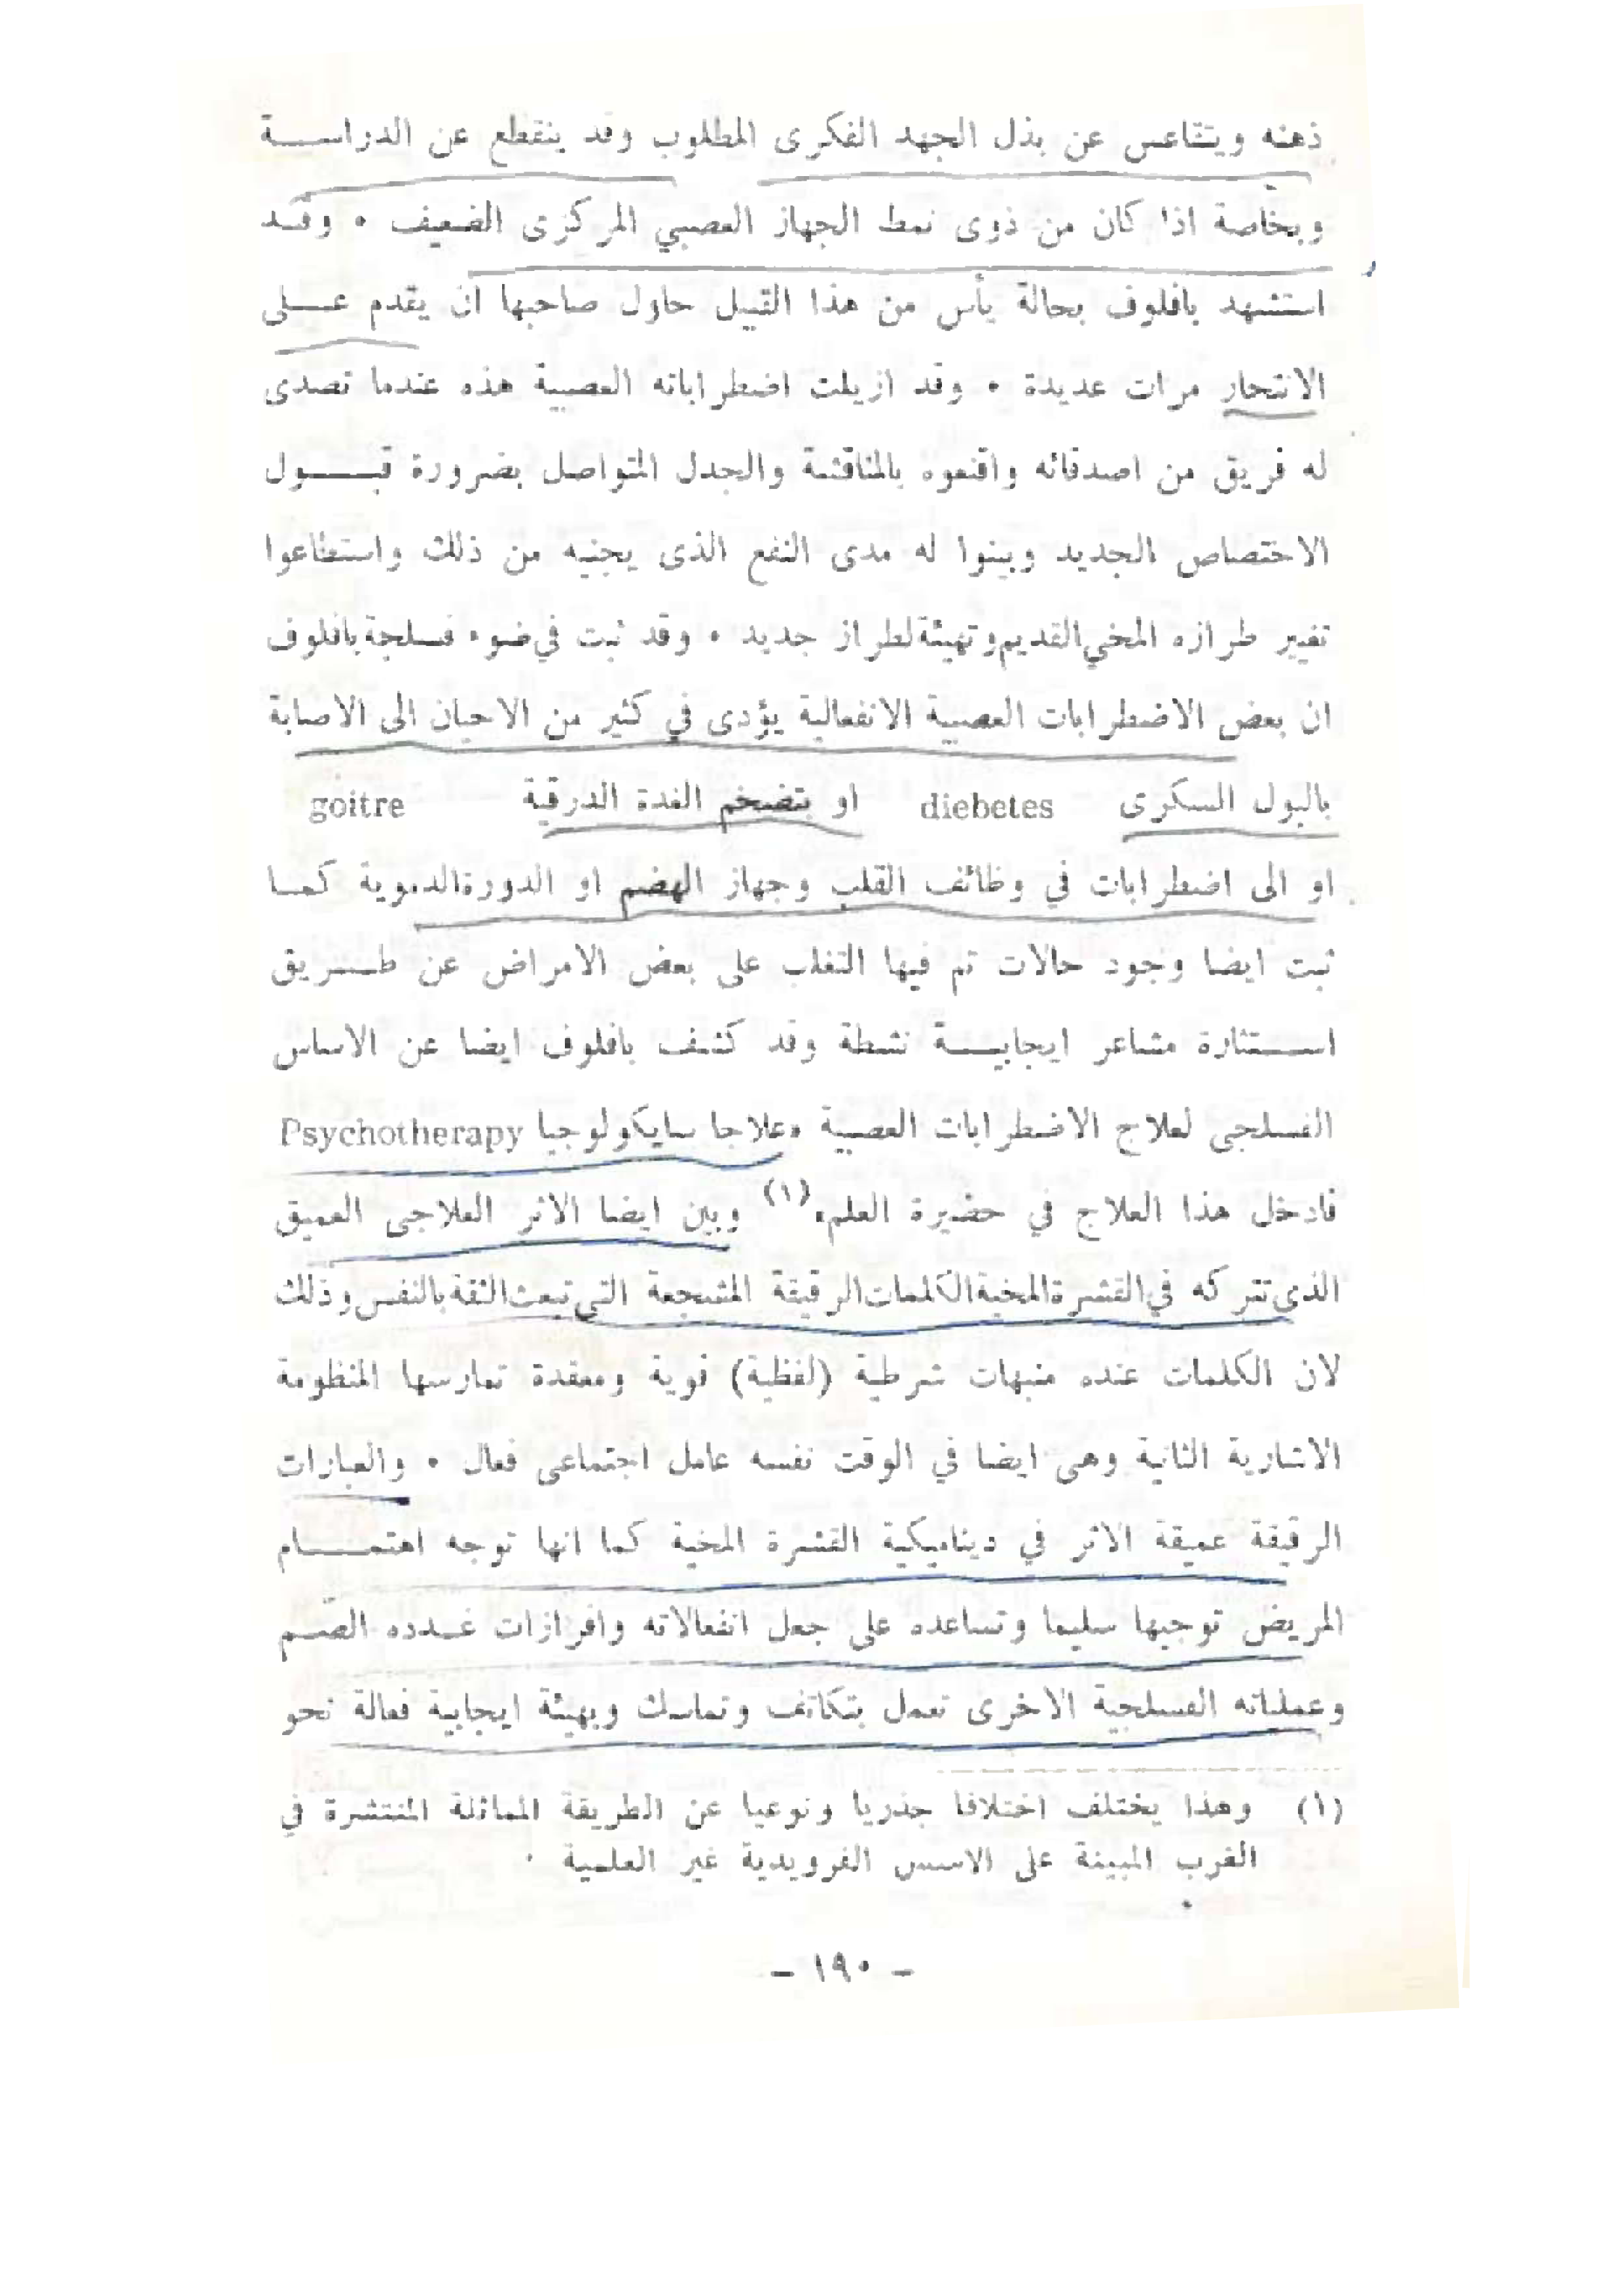 ذهنه ويتقاعس عن بذل الجهد الفكرى المطلوب وقد ينقطع عن الدراسة
وبخاصة اذا كان من ذوى نمط الجهاز العصبي المركزى الضعيف . وقد
استشهد بافلوف بحالة يأس من هذا القبيل حاول صاحبها ان يقدم على
الانتحار مرات عديدة . وقد ازيلت اضطراباته العصبية هذه عندما تصدى
له فريق من اصدقائه واقنعوه بالمناقشة والجدل المتواصل بضرورة قبول
الاختصاص الجديد وبينوا له مدى النفع الذى يجنيه من ذلك واستطاعوا
تغيير طرازه المخي القديم وتهيئة لطراز جديد . وقد ثبت في ضوء فسلجة بافلوف
ان بعض الاضطرابات العصبية الانفعالية يؤدى في كثير من الاحيان الى الاصابة
بالبول السكرى diebetes او بتضخم الغدة الدرقية goitre
او الى اضطرابات في وظائف القلب وجهاز الهضم او الدورة الدموية كما
ثبت ايضا وجود حالات تم فيها التغلب على بعض الامراض عن طريق
استثارة مشاعر ايجابية نشطة وقد كشف بافلوف ايضا عن الاساس
الفسلجى لعلاج الاضطرابات العصبية .علاجا سايكولوجيا Psychotherapy
فادخل هذا العلاج في حضيرة العلم.(١) وبين ايضا الاثر العلاجى العميق
الذى تتركه في القشرة المخية الكلمات الرقيقة المشجعة التي تبعث الثقة بالنفس وذلك
لان الكلمات عنده منبهات شرطية (لفظية) قوية ومعقدة تمارسها المنظومة
الاشارية الثانية وهى ايضا في الوقت نفسه عامل اجتماعى فعال . والعبارات
الرقيقة عميقة الاثر في ديناميكية القشرة المخية كما انها توجه اهتمام
المريض توجيها سليما وتساعده على جعل انفعالاته وافرازات غدده الصم
وعملياته الفسلجية الاخرى تعمل بتكاتف وتماسك وبهيئة ايجابية فعالة نحو
(١) وهذا يختلف اختلافا جذريا ونوعيا عن الطريقة المماثلة المنتشرة في
الغرب المبينة على الاسس الفرويدية غير العلمية .
– ١٩٠ –